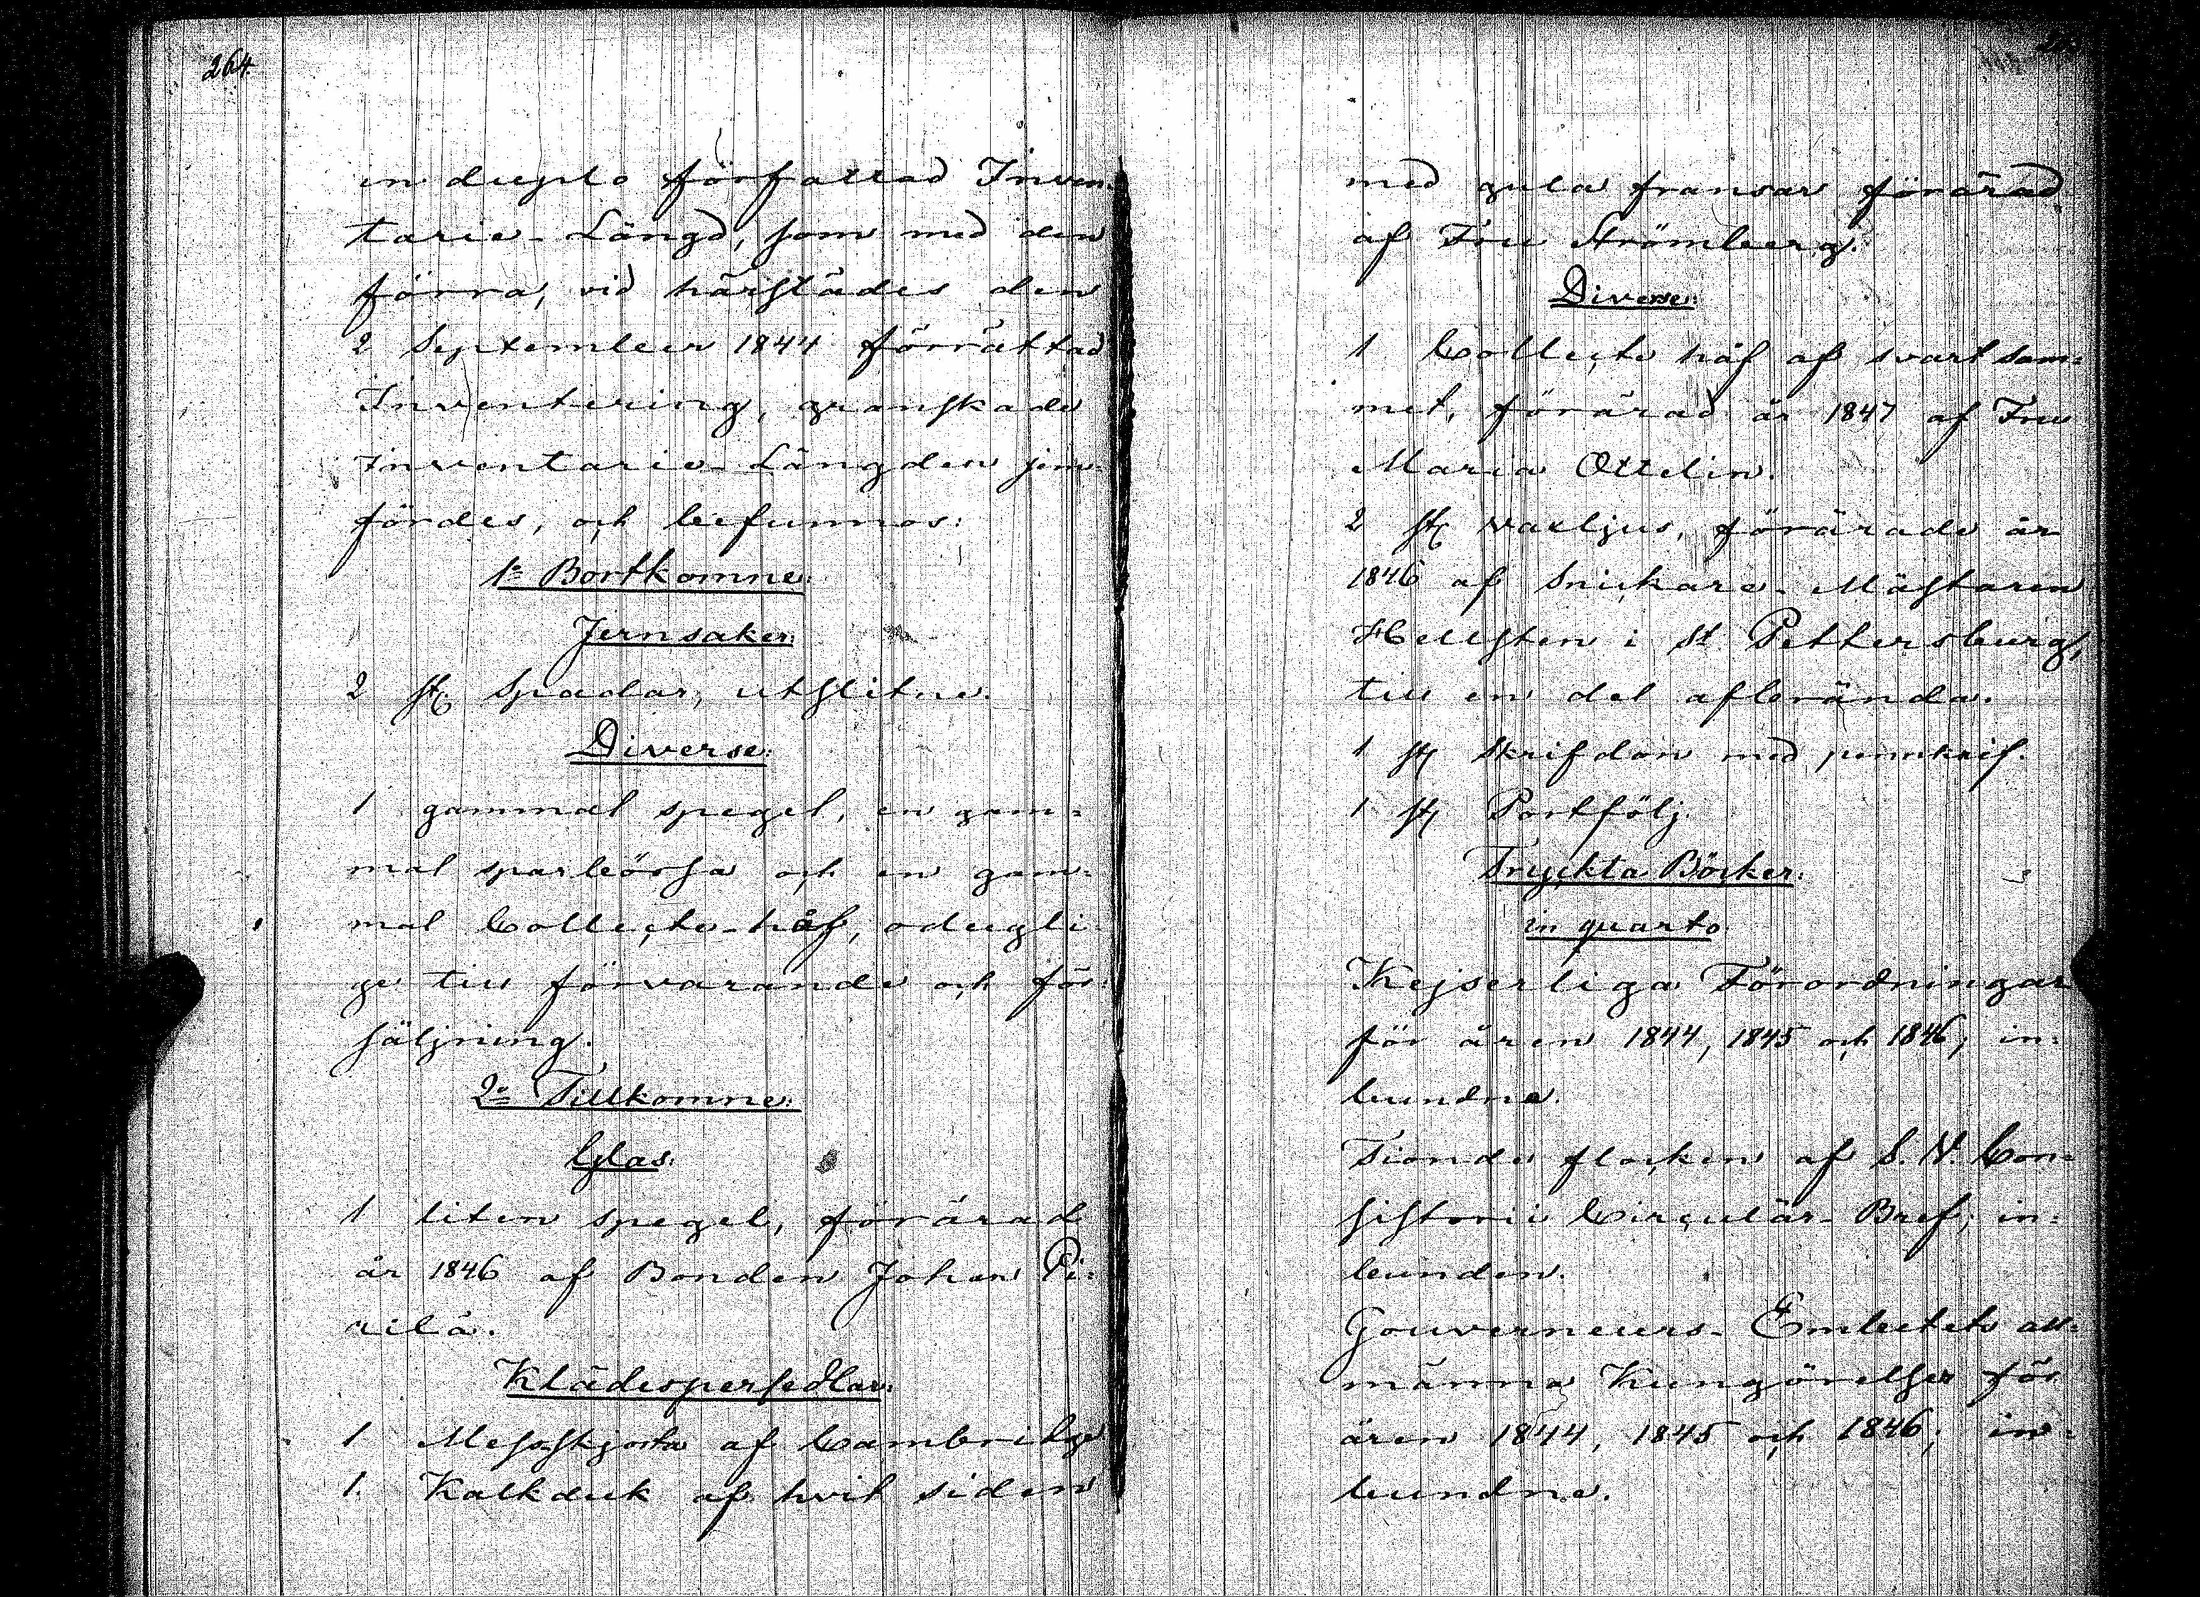 264.
in duplo författad Inven-
tarie-Längd, som med den
förra, vid härstädes den
2 September 1844 förrättad
Inventering, granskade
Inventarie-Längden jem-
fördes, och befunnos:
1º Bortkomne:
Jernsaker:
2 st. Spadar, utslitne.
Diverse:
1 gammal spegel, en gam=
mal sparbössa och en gam=
mal Collecte-håf, odugli-
ge till förvarande och för=
säljning.
2º Tillkomne:
Glas:
1 liten spegel, förärad
år 1846 af Bonden Johan Pi=
rilä.
Klädespersedlar:
1 Messskjorta af Cambridge
1 Kalkduk af hvit siden
med gula fransar förärad
af Fru Strömberg.
Diverse:
1 Collecte håf af svart sam=
met, förärad år 1847 af Fru
Maria Ottelin.
2 st vaxljus, förärade år
1846 af Snickare-Mästaren
Hellsten i St Pettersburg,
till en del afbrända.
1 st Skrifdon med pennknif.
1 st Portfölj.
Tryckta Böcker:
in quarto.
Kejserliga Förordningar
för åren 1844, 1845 och 1846; in=
bundne.
Tionde flocken af S. V. Con=
sistorii Circulär-Bref; in=
bunden.
Gouverneurs-Embetets all=
männa Kungörelser för
åren 1844, 1845 och 1846; in=
bundne.